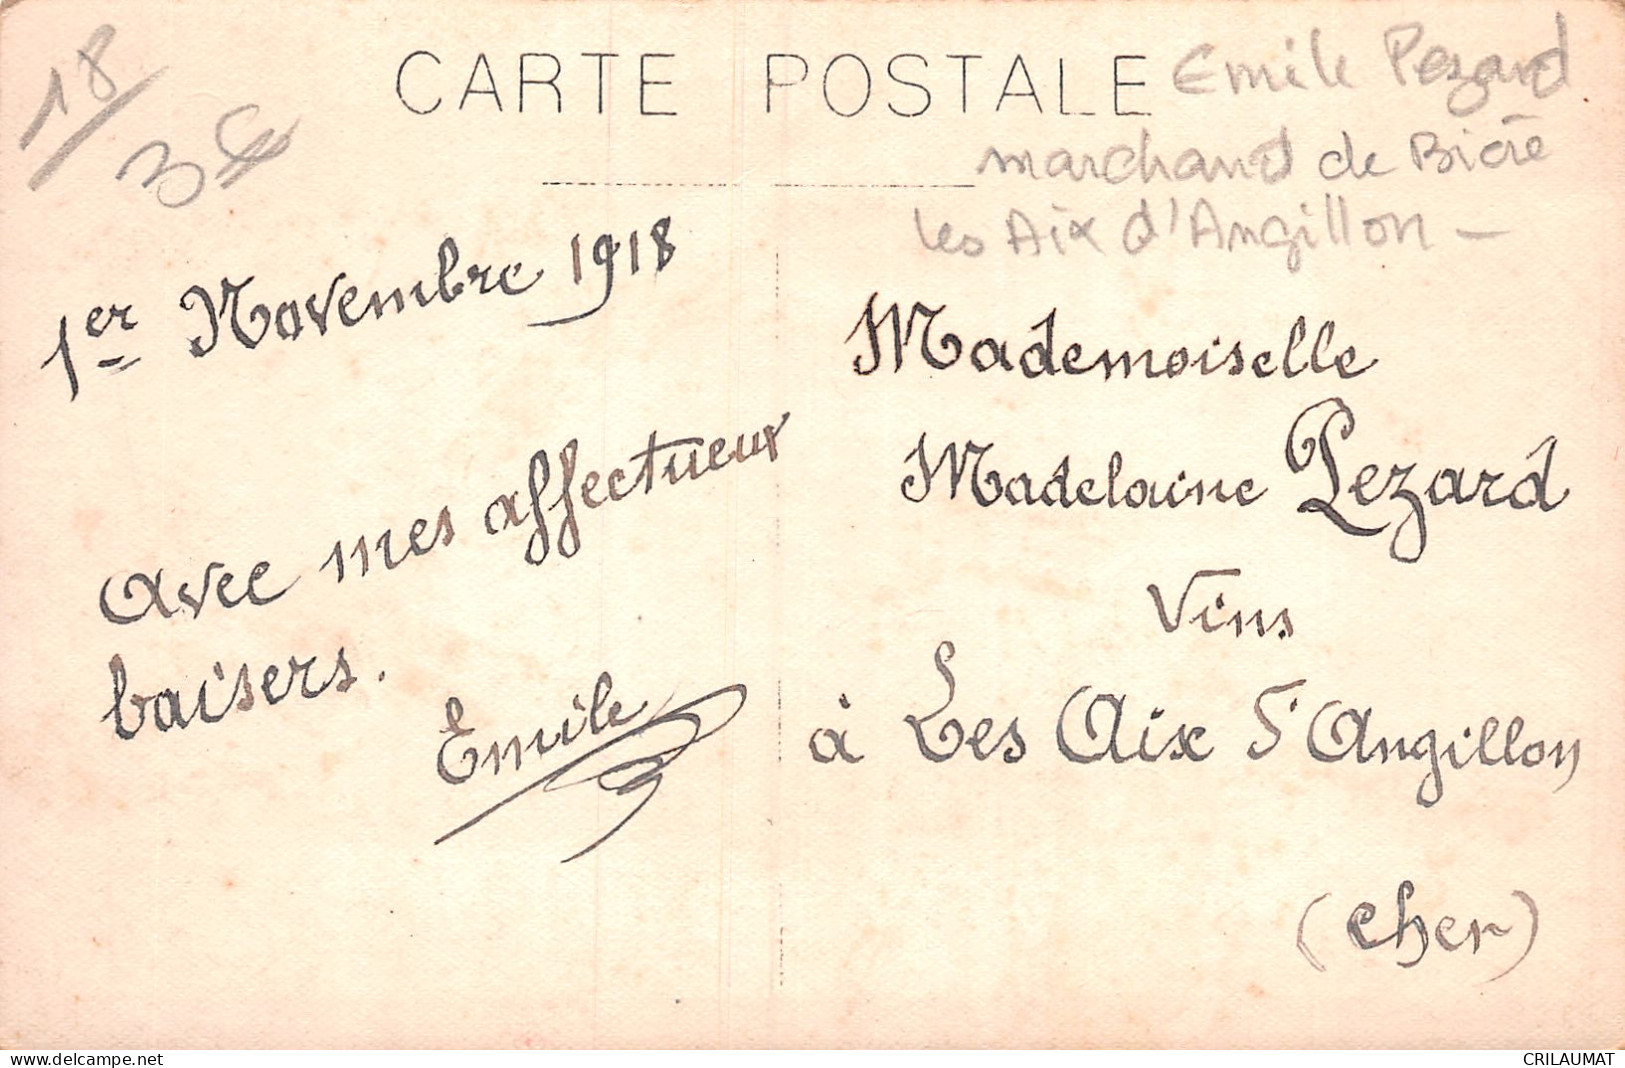 18/
3€
CARTE POSTALE
Emile Pezard
marchand de Bière
les Aix d'Angillon -
1er Novembre 1918
avec mes affectueux
baisers.
Emile
Mademoiselle
Madelaine Pezard
Vins
à Les Aix d'Angillon
(Cher)
www.delcampe.net
CRILAUMAT